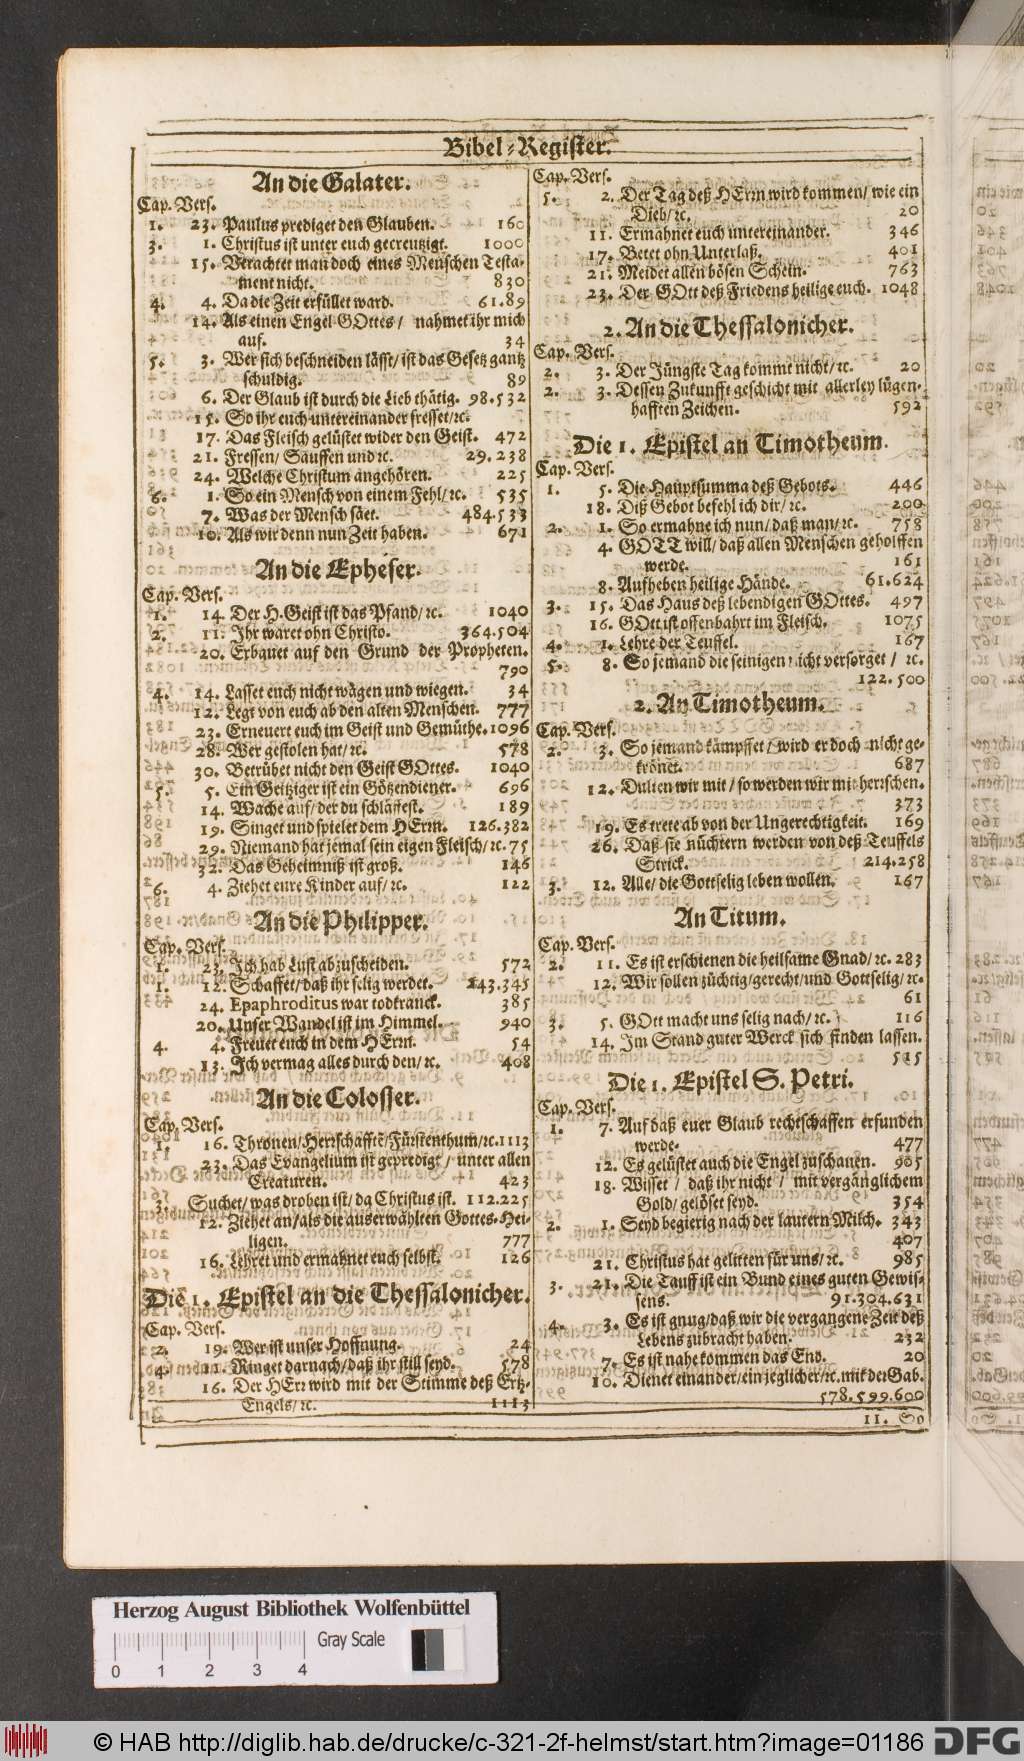 Bibel-Register.
An die Galater.
Cap. Vers.
1. 23. Paulus prediget den Glauben. 160
3. 1. Christus ist unter euch gecreuzigt. 1000
15. Verachtet man doch eines Menschen Testa-
ment nicht. 830
4. 4. Da die Zeit erfüllet ward. 61.89
14. Als einen Engel GOttes / nahmet ihr mich
auf. 34
5. 3. Wer sich beschneiden lässt / ist das Gesetz gantz
schuldig. 89
6. Der Glaub ist durch die Lieb thätig. 98.532
15. So ihr euch untereinander fresset/ꝛc.
17. Das Fleisch gelüstet wider den Geist. 472
21. Fressen/ Sauffen und ꝛc. 29.238
24. Welche Christum angehören. 225
6. 1. So ein Mensch von einem Fehl/ꝛc. 535
7. Was der Mensch säet. 484.533
10. Als wir denn nun Zeit haben. 671
An die Epheser.
Cap. Vers.
1. 14. Der H. Geist ist das Pfand/ꝛc. 1040
2. 11. Ihr waret ohn Christo. 364.504
20. Erbauet auf den Grund der Propheten.
790
4. 14. Lasset euch nicht wägen und wiegen. 34
12. Legt von euch ab den alten Menschen. 777
23. Erneuert euch im Geist und Gemüthe. 1096
28. Wer gestolen hat/ꝛc. 578
30. Betrübet nicht den Geist GOttes. 1040
5. 5. Ein Geitziger ist ein Götzendiener. 696
14. Wache auf/der du schläffest. 189
19. Singet und spielet dem HErrn. 126.382
29. Niemand hat jemal sein eigen Fleisch/ꝛc. 75
32. Das Geheimniß ist groß. 146
6. 4. Ziehet eure Kinder auf/ꝛc. 122
An die Philipper.
Cap. Vers.
1. 23. Ich hab Lust abzuscheiden. 572
1. 12. Schaffet/daß ihr selig werdet. 243.345
24. Epaphroditus war todkranck. 385
20. Unser Wandel ist im Himmel. 940
4. 4. Freuet euch in dem HErrn. 54
13. Ich vermag alles durch den/ꝛc. 408
An die Colosser.
Cap. Vers.
1. 16. Thronen/Herrschafften/Fürstenthum/ꝛc. 1113
23. Das Evangelium ist geprediget / unter allen
Creaturen. 423
3. Suchet/was droben ist/da Christus ist. 112.225
12. Ziehet an/als die auserwählten Gottes-Hei-
ligen. 777
16. Lehret und ermahnet euch selbst. 126
Die 1. Epistel an die Thessalonicher.
Cap. Vers.
2. 19. Wer ist unser Hoffnung. 24
4. 11. Ringet darnach/daß ihr still seyd. 578
16. Der HErr wird mit der Stimme deß Ertz-
Engels/ꝛc. 1113
Cap. Vers.
5. 2. Der Tag deß HErrn wird kommen/ wie ein
Dieb/ꝛc. 20
11. Ermahnet euch untereinander. 346
17. Betet ohn Unterlaß. 401
21. Meidet allen bösen Schein. 763
23. Der GOtt deß Friedens heilige euch. 1048
2. An die Thessalonicher.
Cap. Vers.
2. 3. Der Jüngste Tag kommt nicht/ꝛc. 20
2. 3. Dessen Zukunfft geschicht mit allerley lügen-
hafften Zeichen. 592
Die 1. Epistel an Timotheum.
Cap. Vers.
1. 5. Die Hauptsumma deß Gebots. 446
18. Diß Gebot befehl ich dir/ꝛc. 200
2. 1. So ermahne ich nun/daß man/ꝛc. 758
4. GOTT will/ daß allen Menschen geholffen
werde. 161
8. Aufheben heilige Hände. 61.624
3. 15. Das Haus deß lebendigen GOttes. 497
16. GOtt ist offenbahrt im Fleisch. 1075
4. 1. Lehre der Teuffel. 167
5. 8. So jemand die seinigen nicht versorget / ꝛc.
122.500
2. An Timotheum.
Cap. Vers.
2. 3. So jemand kämpffet / wird er doch nicht ge-
krönet. 687
12. Dulten wir mit/so werden wir mit herrschen.
373
19. Es trete ab von der Ungerechtigkeit. 169
26. Daß sie nüchtern werden von deß Teuffels
Strick. 214.258
3. 12. Alle/ die Gottselig leben wollen. 167
An Titum.
Cap. Vers.
2. 11. Es ist erschienen die heilsame Gnad/ꝛc. 283
12. Wir sollen züchtig/gerecht/und Gottselig/ꝛc.
61
3. 5. GOtt macht uns selig nach/ꝛc. 116
14. Im Stand guter Werck sich finden lassen.
515
Die 1. Epistel S. Petri.
Cap. Vers.
1. 7. Auf daß euer Glaub rechtschaffen erfunden
werde. 477
12. Es gelüstet auch die Engel zuschauen. 905
18. Wisset / daß ihr nicht / mit vergänglichem
Gold/ gelöset seyd. 354
2. 1. Seyd begierig nach der lautern Milch. 343
407
21. Christus hat gelitten für uns/ꝛc. 985
3. 21. Die Tauff ist ein Bund eines guten Gewis-
sens. 91.304.631
4. 3. Es ist gnug/daß wir die vergangene Zeit deß
Lebens zubracht haben. 232
7. Es ist nahe kommen das End. 20
10. Dienet einander/ein jeglicher/ꝛc. mit der Gab.
578.599.600
11. So
Herzog August Bibliothek Wolfenbüttel
Gray Scale
0 1 2 3 4
© HAB http://diglib.hab.de/drucke/c-321-2f-helmst/start.htm?image=01186
DFG